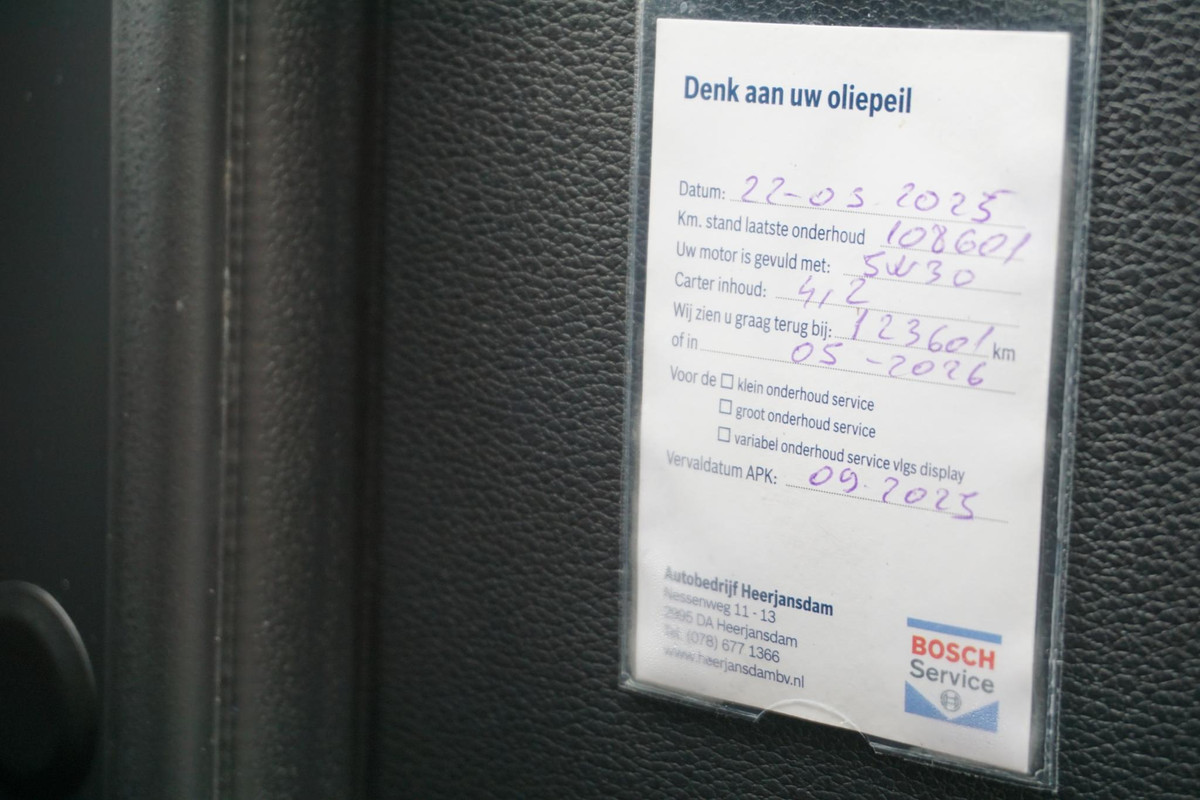 Denk aan uw oliepeil
Datum: 22-05 2025
Km. stand laatste onderhoud 108601
Uw motor is gevuld met: 5W30
Carter inhoud: 4,2
Wij zien u graag terug bij: 123601 km
of in 05-2026
Voor de ☐ klein onderhoud service
☐ groot onderhoud service
☐ variabel onderhoud service vlgs display
Vervaldatum APK: 09.2025
Autobedrijf Heerjansdam
Nessenweg 11 - 13
2995 DA Heerjansdam
Tel. (078) 677 1366
www.heerjansdambv.nl
BOSCH
Service